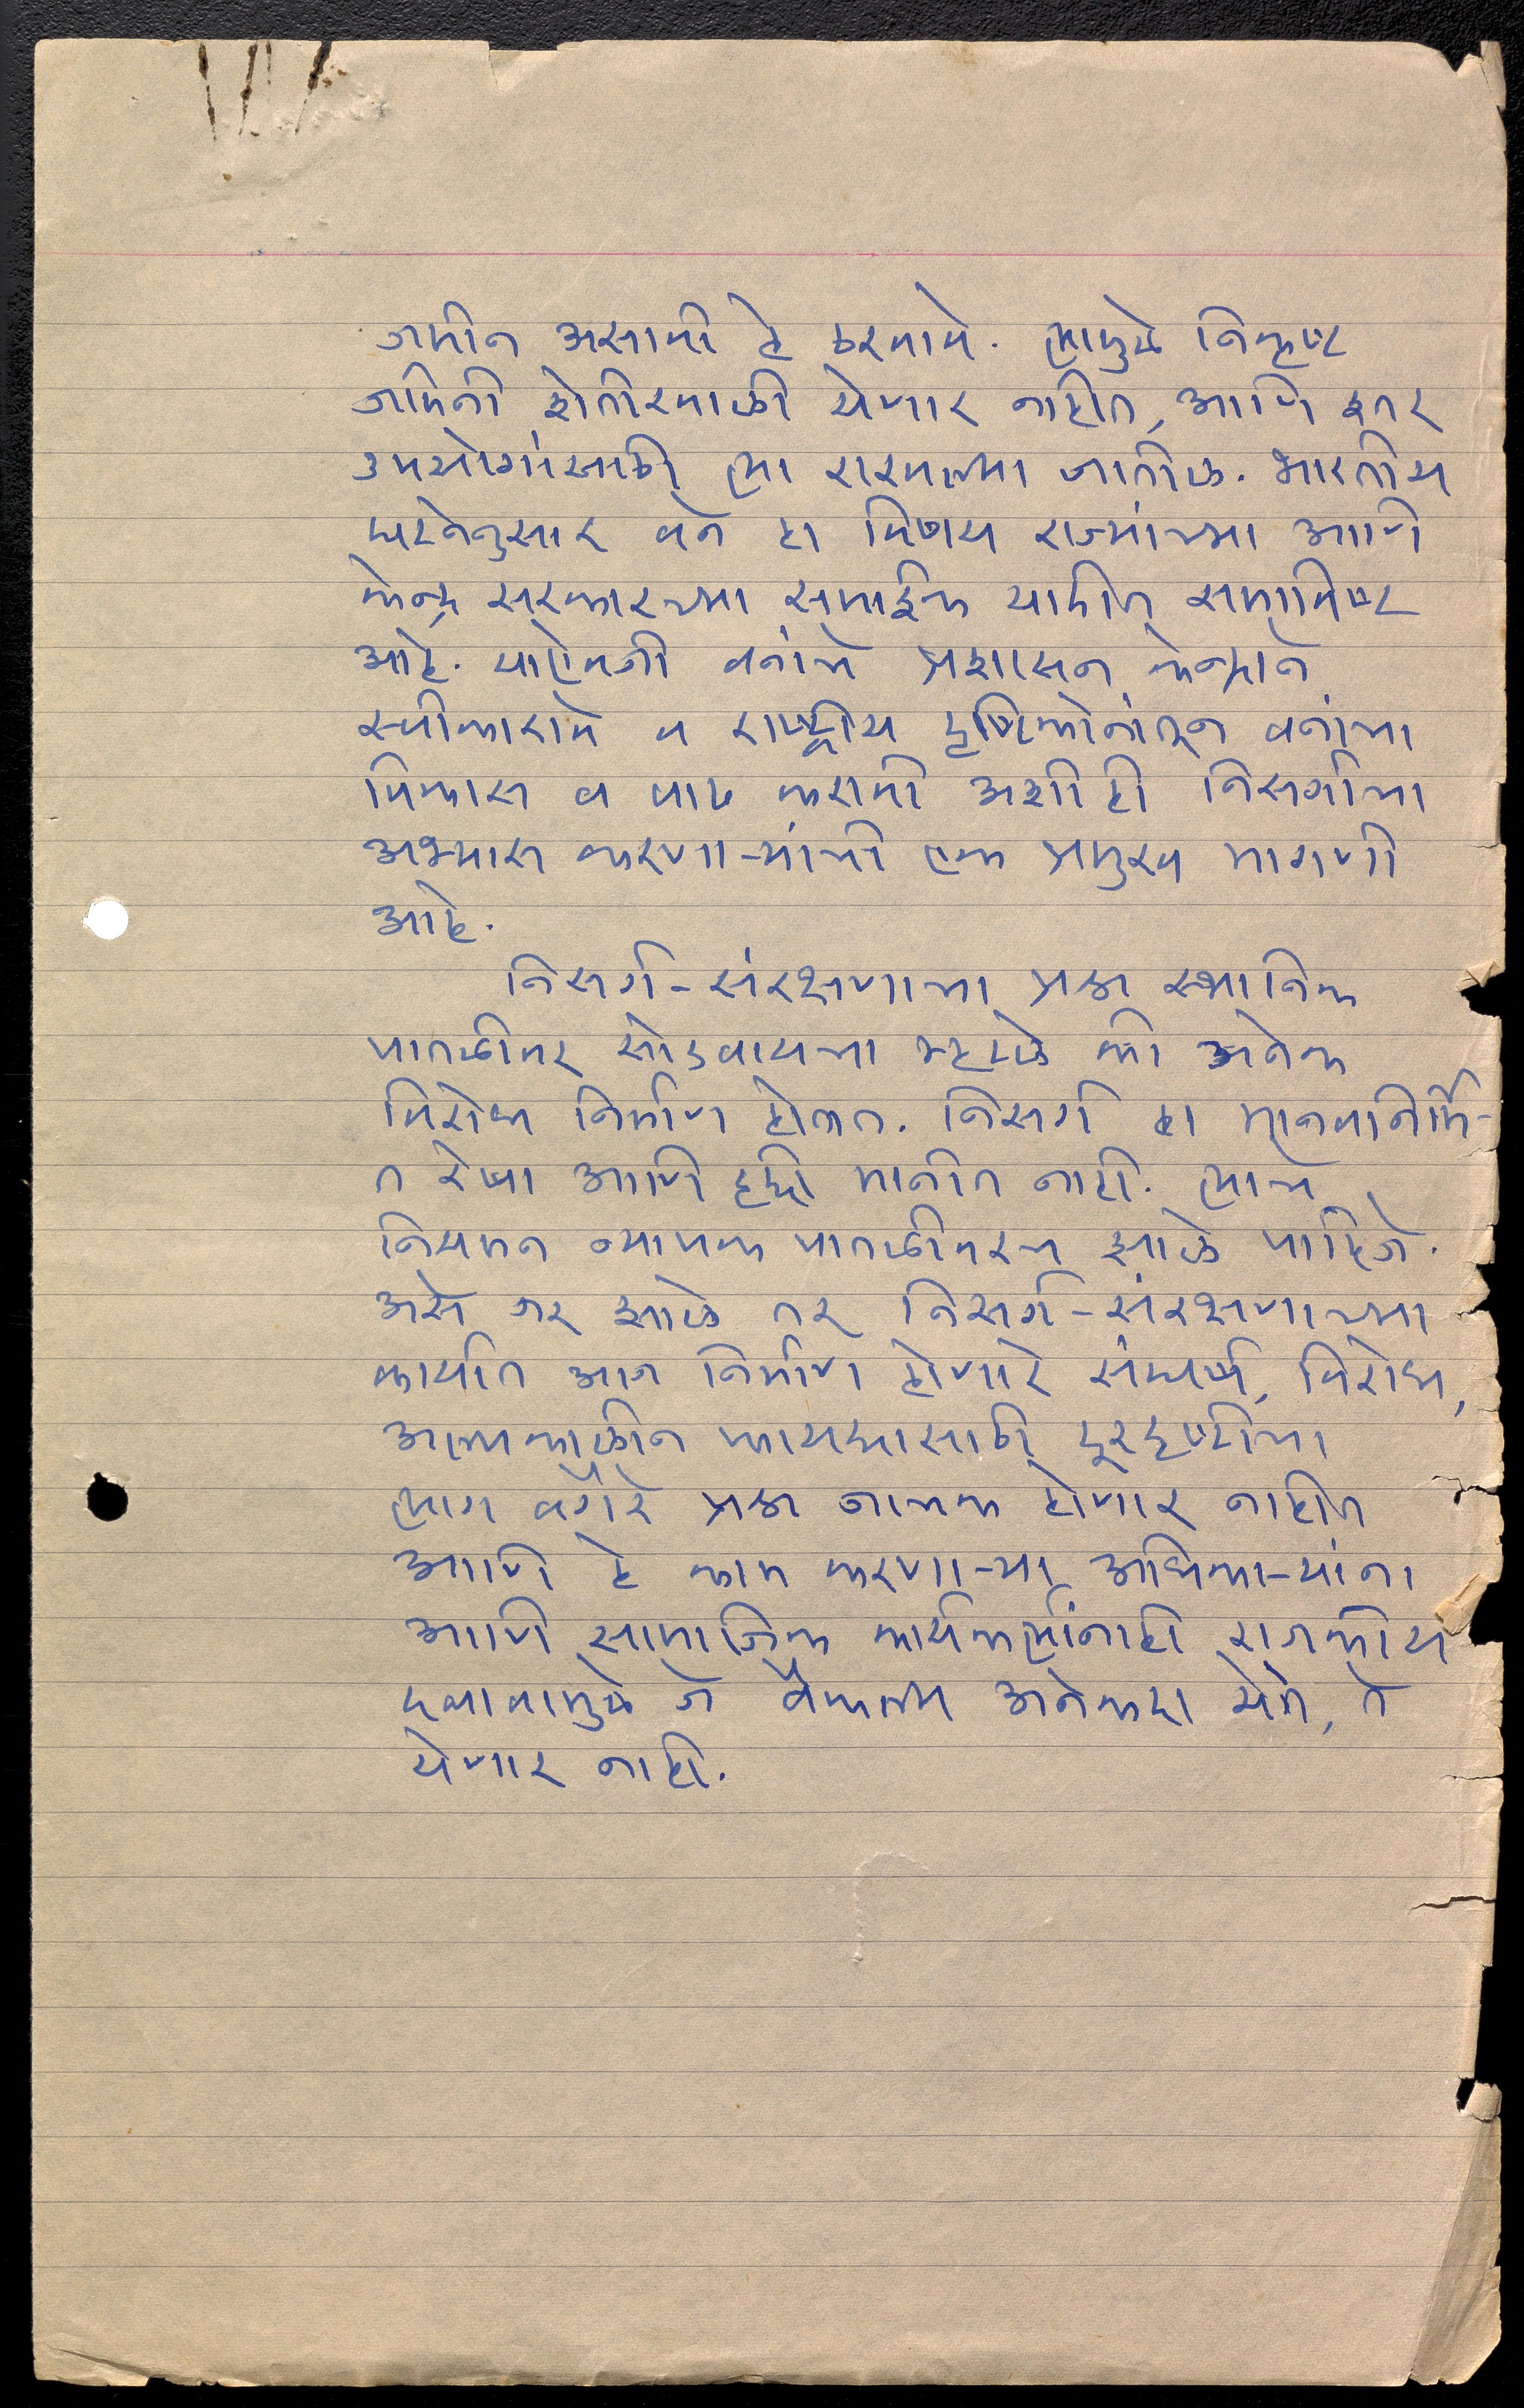 जमीन असावी हे ठरवावे. त्यामुळे निकृष्ट
जमिनी शेतीखाली येणार नाहीत, आणि इतर
उपयोगांसाठी त्या राखल्या जातील. भारतीय
घटनेनुसार वने हा विषय राज्यांच्या आणि
केन्द्र सरकारच्या सामाईक यादीत समाविष्ट
आहे. याऐवजी वनांचे प्रशासन केन्द्राने
स्वीकारावे व राष्ट्रीय दृष्टिकोनांतून वनांचा
विकास व वाढ करावी अशीही निसर्गाचा
अभ्यास करणा-यांची एक प्रमुख मागणी
आहे.
निसर्ग-संरक्षणाचा प्रश्न स्थानिक
पातळीवर सोडवायचा म्हटले की अनेक
विरोध निर्माण होतात. निसर्ग हा मानवनिर्मि-
त रेषा आणि हद्दी मानीत नाही. त्याचे
नियमन व्यापक पातळीवरच झाले पाहिजे.
असे जर झाले तर निसर्ग-संरक्षणाच्या
कार्यात आज निर्माण होणारे संघर्ष, विरोध,
अल्पकालीन फायद्यासाठी दूरदृष्टीचा
त्याग वगैरे प्रश्न जाचक होणार नाहीत
आणि हे काम करणा-या अधिका-यांना
आणि सामाजिक कार्यकर्त्यांनाही राजकीय
दबावामुळे जे वैफल्य अनेकदा येते, ते
येणार नाही.